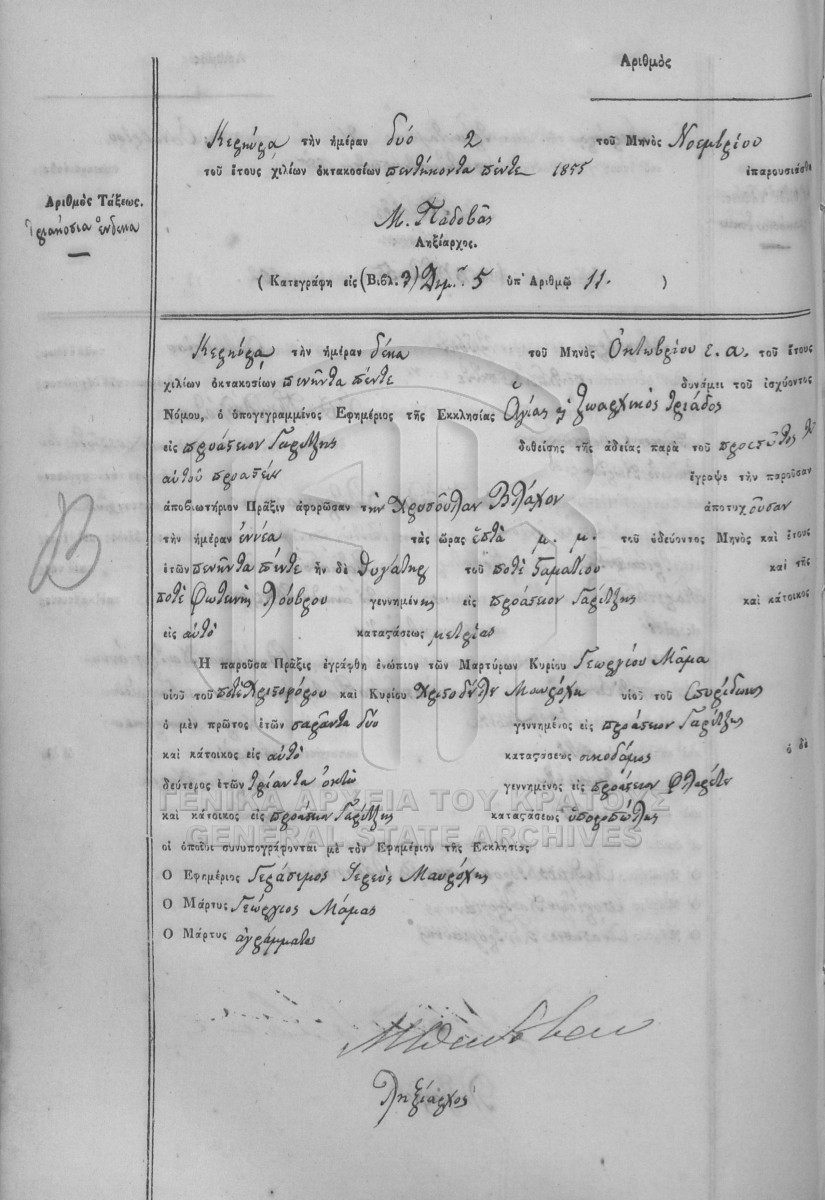 Ἀριθμὸς
Κερκύρᾳ τὴν ἡμέραν δύό 2 τοῦ Μηνὸς Νοεμβρίου
τοῦ ἔτους χιλίων ὀκτακοσίων πεντήκοντα πέντε 1855 ἐπαρουσιάσθη
Ἀριθμὸς Τάξεως.
τριακόσια ἕνδεκα
Μ. Παδοβᾶς
Ληξίαρχος.
( Κατεγράφη εἰς (Βιβλ. 5 ὑπ' Ἀριθμῷ 11. )
Κερκύρᾳ τὴν ἡμέραν δέκα τοῦ Μηνὸς Ὀκτωβρίου ε. α. τοῦ ἔτους
χιλίων ὀκτακοσίων πενῆντα πέντε δυνάμει τοῦ ἰσχύοντος
Νόμου, ὁ ὑπογεγραμμένος Ἐφημέριος τῆς Ἐκκλησίας Ἁγίας ζωαρχικὸς τριάδος
εἰς προάστιον Γαρίτζης δοθείσης τῆς ἀδείας παρὰ τοῦ
αὐτοῦ ἔγραψε τὴν παροῦσαν
ἀποβιωτήριον Πρᾶξιν ἀφορῶσαν τὴν Χρυσοῦλαν Βλάχου ἀποτυχοῦσαν
τὴν ἡμέραν ἐννέα τὰς ὥρας ἑπτὰ μ. μ. τοῦ ὁδεύοντος Μηνὸς καὶ ἔτους
ἐτῶν πενῆντα πέντε ἦν δὲ θυγάτηρ τοῦ ποτὲ Σταματίου καὶ τῆς
ποτὲ Φωτεινῆς γεννημένης εἰς προάστιον Γαρίτζης καὶ κάτοικος
εἰς αὐτὸ καταστάσεως μετρίας
Ἡ παροῦσα Πρᾶξις ἐγράφθη ἐνώπιον τῶν Μαρτύρων Κυρίου Γεωργίου Μάμα
υἱοῦ τοῦ ποτὲ Χριστοφόρου καὶ Κυρίου Χριστοδούλου Μαυρόχη υἱοῦ τοῦ Σπυρίδωνος
ὁ μὲν πρῶτος ἐτῶν σαράντα δύο γεννημένος εἰς προάστιον Γαρίτζης
καὶ κάτοικος εἰς αὐτὸ καταστάσεως οἰκοδόμος ὁ δὲ
δεύτερος ἐτῶν τριάντα ὀκτὼ γεννημένος εἰς προάστιον
καὶ κάτοικος εἰς προάστιον Γαρίτζης καταστάσεως ὀπωροπώλης
ΓΕΝΙΚΑ ΑΡΧΕΙΑ ΤΟΥ ΚΡΑΤΟΥΣ
GENERAL STATE ARCHIVES
οἱ ὁποῖοι συνυπογράφονται μὲ τὸν Ἐφημέριον τῆς Ἐκκλησίας
Ὁ Ἐφημέριος Γεράσιμος Ἱερεὺς Μαυρόχης
Ὁ Μάρτυς Γεώργιος Μάμας
Ὁ Μάρτυς ἀγράμματος
Ληξίαρχος